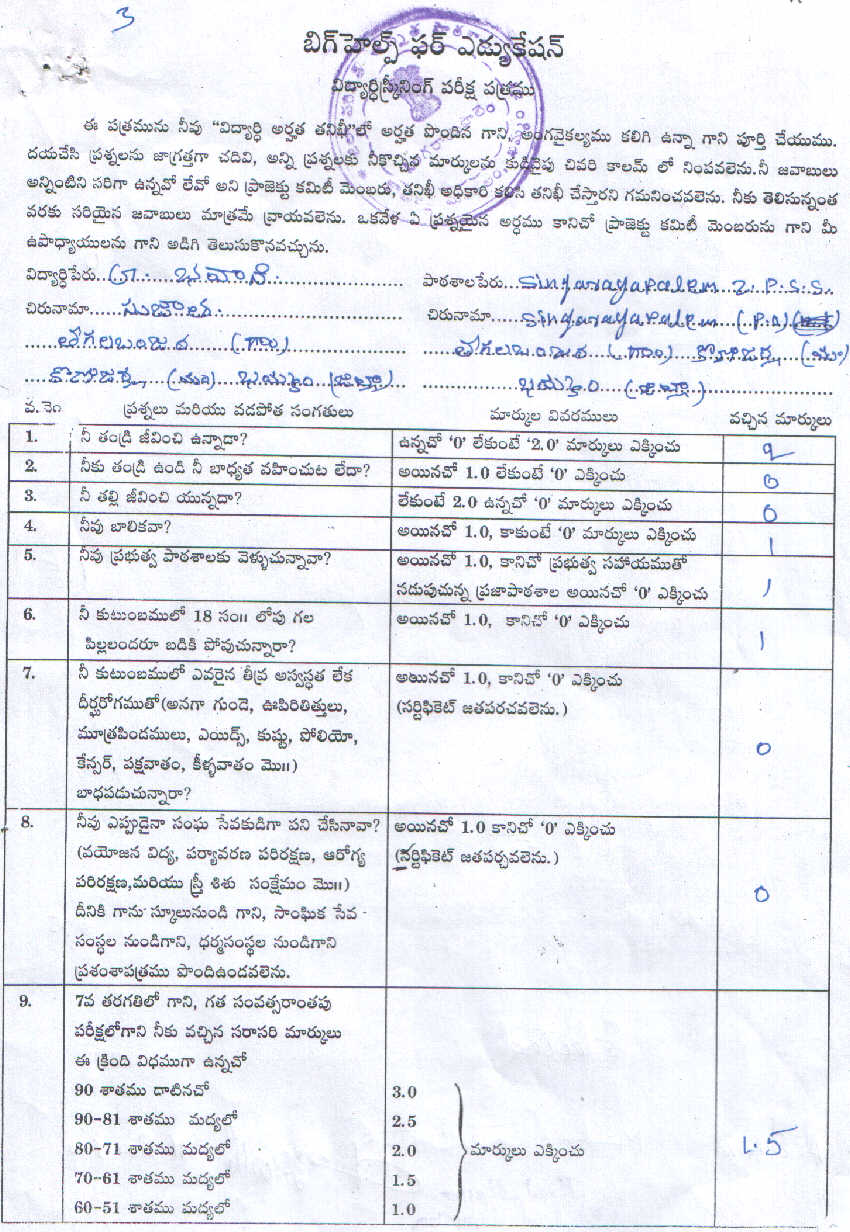 3
బిగ్‌హెల్ప్ ఫర్ ఎడ్యుకేషన్
విద్యార్ధిస్క్రీనింగ్ పరీక్ష పత్రము
ఈ పత్రమును నీవు "విద్యార్ధి అర్హత తనిఖీ"లో అర్హత పొందిన గాని, అంగవైకల్యము కలిగి ఉన్నా గాని పూర్తి చేయుము.
దయచేసి ప్రశ్నలను జాగ్రత్తగా చదివి, అన్ని ప్రశ్నలకు నీకొచ్చిన మార్కులను కుడివైపు చివరి కాలమ్ లో నింపవలెను.నీ జవాబులు
అన్నింటిని సరిగా ఉన్నవో లేవో అని ప్రాజెక్టు కమిటీ మెంబరు, తనిఖీ అధికారి కలిసి తనిఖీ చేస్తారని గమనించవలెను. నీకు తెలిసున్నంత
వరకు సరియైన జవాబులు మాత్రమే వ్రాయవలెను. ఒకవేళ ఏ ప్రశ్నయైన అర్ధము కానిచో ప్రాజెక్టు కమిటీ మెంబరును గాని మీ
ఉపాధ్యాయులను గాని అడిగి తెలుసుకొనవచ్చును.
విద్యార్ధిపేరు... జి. భవాని. పాఠశాలపేరు...Singarayapalem Z.P.S.S.
చిరునామా... సుజాత. చిరునామా...Singarayapalem (P.O)
తూగలబంజర (గ్రా) తూగలబంజర (గ్రా) కొణిజర్ల (మం)
కొణిజర్ల (మం) ఖమ్మం (జిల్లా) ఖమ్మం (జిల్లా)
వ.సం ప్రశ్నలు మరియు వడపోత సంగతులు మార్కుల వివరములు వచ్చిన మార్కులు
1. నీ తండ్రి జీవించి ఉన్నాడా? ఉన్నచో '0' లేకుంటే '2.0' మార్కులు ఎక్కించు 2
2. నీకు తండ్రి ఉండి నీ బాధ్యత వహించుట లేదా? అయినచో 1.0 లేకుంటే '0' ఎక్కించు 0
3. నీ తల్లి జీవించి యున్నదా? లేకుంటే 2.0 ఉన్నచో '0' మార్కులు ఎక్కించు 0
4. నీవు బాలికవా? అయినచో 1.0, కాకుంటే '0' మార్కులు ఎక్కించు 1
5. నీవు ప్రభుత్వ పాఠశాలకు వెళ్ళుచున్నావా? అయినచో 1.0, కానిచో ప్రభుత్వ సహాయముతో
నడుపుచున్న ప్రజాపాఠశాల అయినచో '0' ఎక్కించు 1
6. నీ కుటుంబములో 18 సం॥ లోపు గల అయినచో 1.0, కానిచో '0' ఎక్కించు
పిల్లలందరూ బడికి పోవుచున్నారా? 1
7. నీ కుటుంబములో ఎవరైన తీవ్ర అస్వస్ధత లేక అయినచో 1.0, కానిచో '0' ఎక్కించు
దీర్ఘరోగముతో(అనగా గుండె, ఊపిరితిత్తులు, (సర్టిఫికెట్ జతపరచవలెను.)
మూత్రపిండములు, ఎయిడ్స్, కుష్టు, పోలియో, 0
కేన్సర్, పక్షవాతం, కీళ్ళవాతం మొ॥)
బాధపడుచున్నారా?
8. నీవు ఎప్పుడైనా సంఘ సేవకుడిగా పని చేసినావా? అయినచో 1.0 కానిచో '0' ఎక్కించు
(వయోజన విద్య, పర్యావరణ పరిరక్షణ, ఆరోగ్య (సర్టిఫికెట్ జతపర్చవలెను.)
పరిరక్షణ,మరియు స్త్రీ శిశు సంక్షేమం మొ॥) 0
దీనికి గాను స్కూలునుండి గాని, సాంఘిక సేవ
సంస్ధల నుండిగాని, ధర్మసంస్ధల నుండిగాని
ప్రశంశాపత్రము పొందిఉండవలెను.
9. 7వ తరగతిలో గాని, గత సంవత్సరాంతపు
పరీక్షలోగాని నీకు వచ్చిన సరాసరి మార్కులు
ఈ క్రింది విధముగా ఉన్నచో
90 శాతము దాటినచో 3.0
90-81 శాతము మద్యలో 2.5
80-71 శాతము మద్యలో 2.0 మార్కులు ఎక్కించు 1.5
70-61 శాతము మద్యలో 1.5
60-51 శాతము మద్యలో 1.0